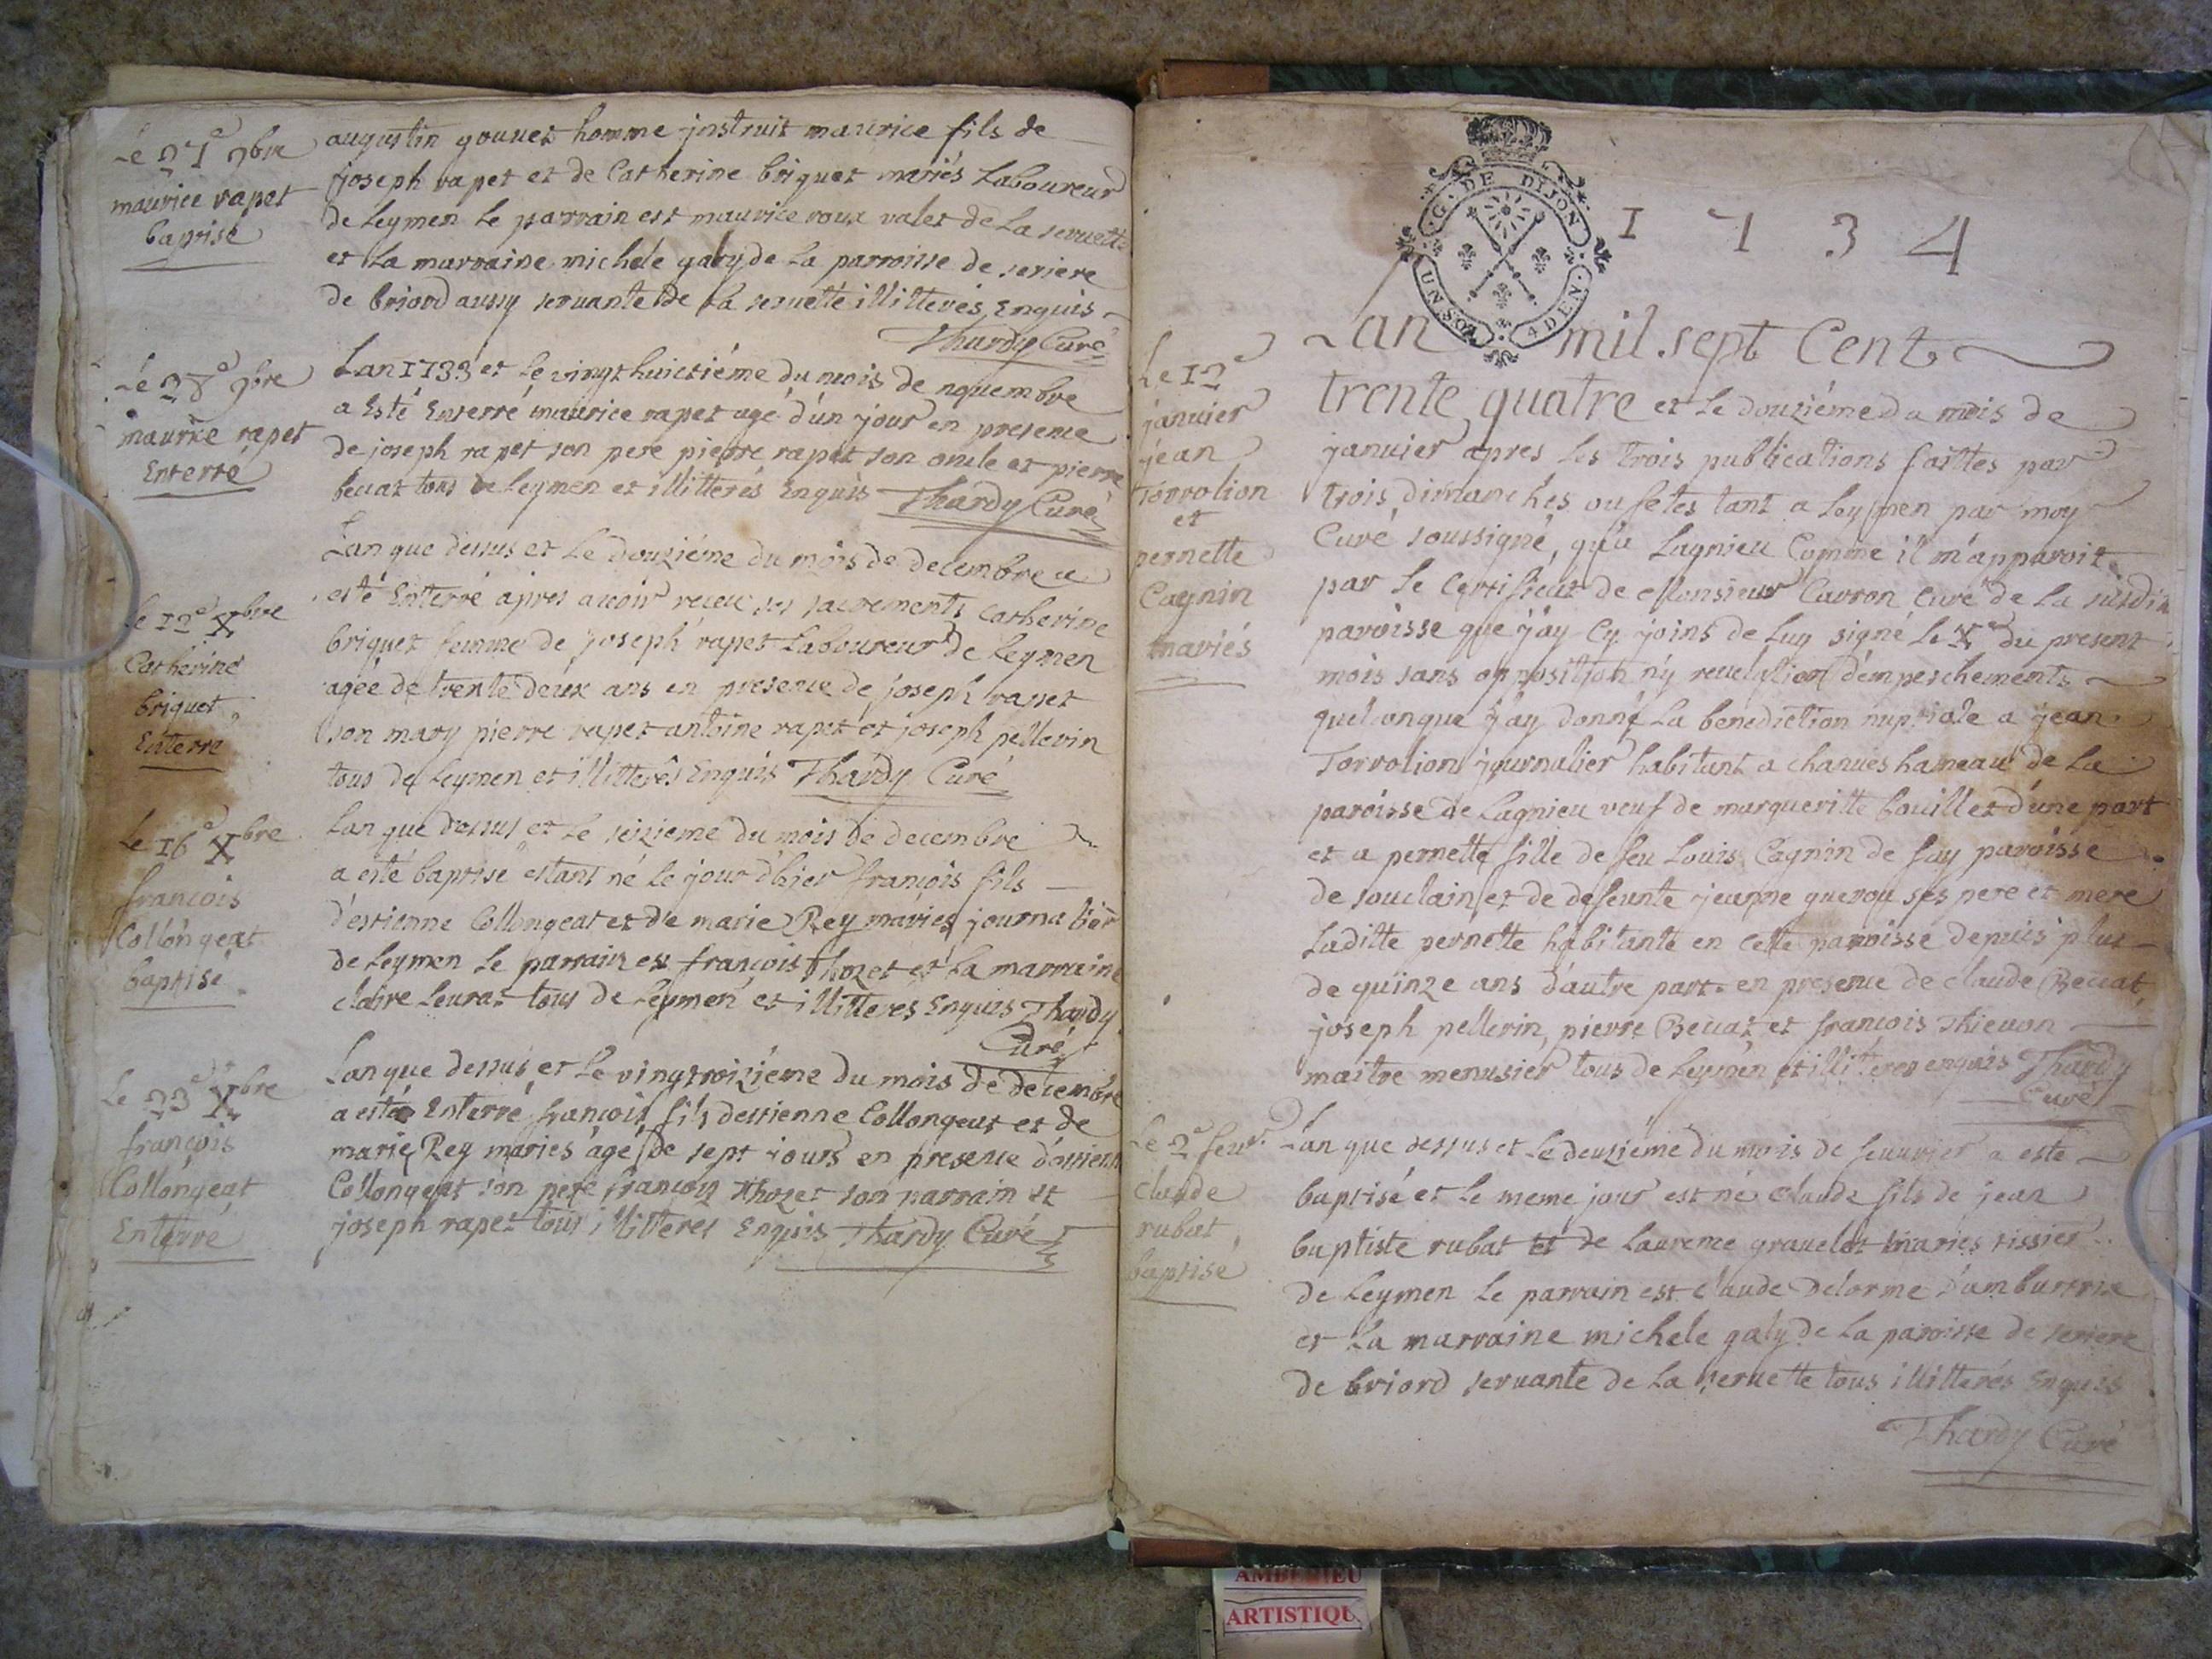 Le 27e 9bre
maurice rapet
baptisé
augustin gouuet homme jnstruit maurice fils de
joseph rapet et de Catherine briquet mariés Laboureur
de Leymen Le parrain est maurice roux valet de La seruette
et La marraine michele galy de La parroisse de seriere
de briord aussy seruante de La seruette illitterés Enquis
Thardy Curé
Le 28e 9bre
maurice rapet
Enterré
Lan 1733 et Le vingt huictiéme du mois de nouembre
a Esté Enterré maurice rapet agé d'un jour en presence
de joseph rapet son pere pierre rapet son oncle et pierre
beccat tous de Leymen et illitterés Enquis Thardy Curé
Le 12e Xbre
Catherine
briquet
Enterre
Lan que dessus et Le douziéme du mois de decembre a
esté Enterré apres auoir receu ses sacrements Catherine
briquet femme de joseph rapet Laboureur de Leymen
agée de trente deux ans en presence de joseph rapet
son mary pierre rapet antoine rapet et joseph pellerin
tous de Leymen et illitterés Enquis Thardy Curé
Le 16e Xbre
francois
Collongeat
baptisé
Lan que dessus et Le seizieme du mois de decembre
a esté baptisé estant né Le jour d'hier francois fils
d'estienne Collongeat et de marie Rey mariés journalier
de Leymen Le parrain est francois Thozet et La marraine
claire Leurat tous de Leymen et illitteres Enquis Thardy
Curé
Le 23e Xbre
francois
Collongeat
Enterré
Lan que dessus et Le vingtroiziéme du mois de decembre
a esté Enterré francois fils destienne Collongeat et de
marie Rey mariés âgé de sept jours en presence d'estienne
Collongeat son pere francois Thozet son parrain et
joseph rapet tous illitteres Enquis Thardy Curé
G. DE DIJON
UN SOL 4 DEN.
1734
Le 12e
januier
jean
Torrolion
et
pernette
Cagnin
mariés
Lan mil sept Cent
trente quatre et Le douziéme du mois de
januier apres Les trois publications faittes par
trois dimanches ou fetes tant a Leymen par moy
Curé soussigné, qu'a Lagnieu Comme il m'apparoit
par Le Certificat de Monsieur Carron Curé de La susditte
paroisse que j'ay Cy joins de Luy signé Le Xe du present
mois sans opposition n'y reuelation d'empeschements
quelconque j'ay donné La benediction nuptiale a jean
Torrolion journalier habitant a chanués hameau de La
paroisse de Lagnieu veuf de margueritte bouillet d'une part
et a pernette fille de feu Louis Cagnin de fay paroisse
de souclain et de defeunte jeanne queron ses pere et mere
Laditte pernette habitante en cette paroisse depuis plus
de quinze ans d'autre part en presence de claude Beccat,
joseph pellerin, pierre Beccat et françois Thieuon
maitre menusier tous de Leymen et illitteres enquis Thardy
Curé
Le 2e feur.
claude
rubat
baptisé
Lan que dessus et Le deuziéme du mois de feuurier a esté
baptisé et Le meme jour est né claude fils de jean
baptiste rubat et de Laurence grauelet mariés tissier
de Leymen Le parrain est claude delorme d'ambutrix
et La marraine michele galy de La paroisse de seriere
de briord seruante de La seruette tous illitterés Enquis
Thardy Curé
AMBERIEU
ARTISTIQU